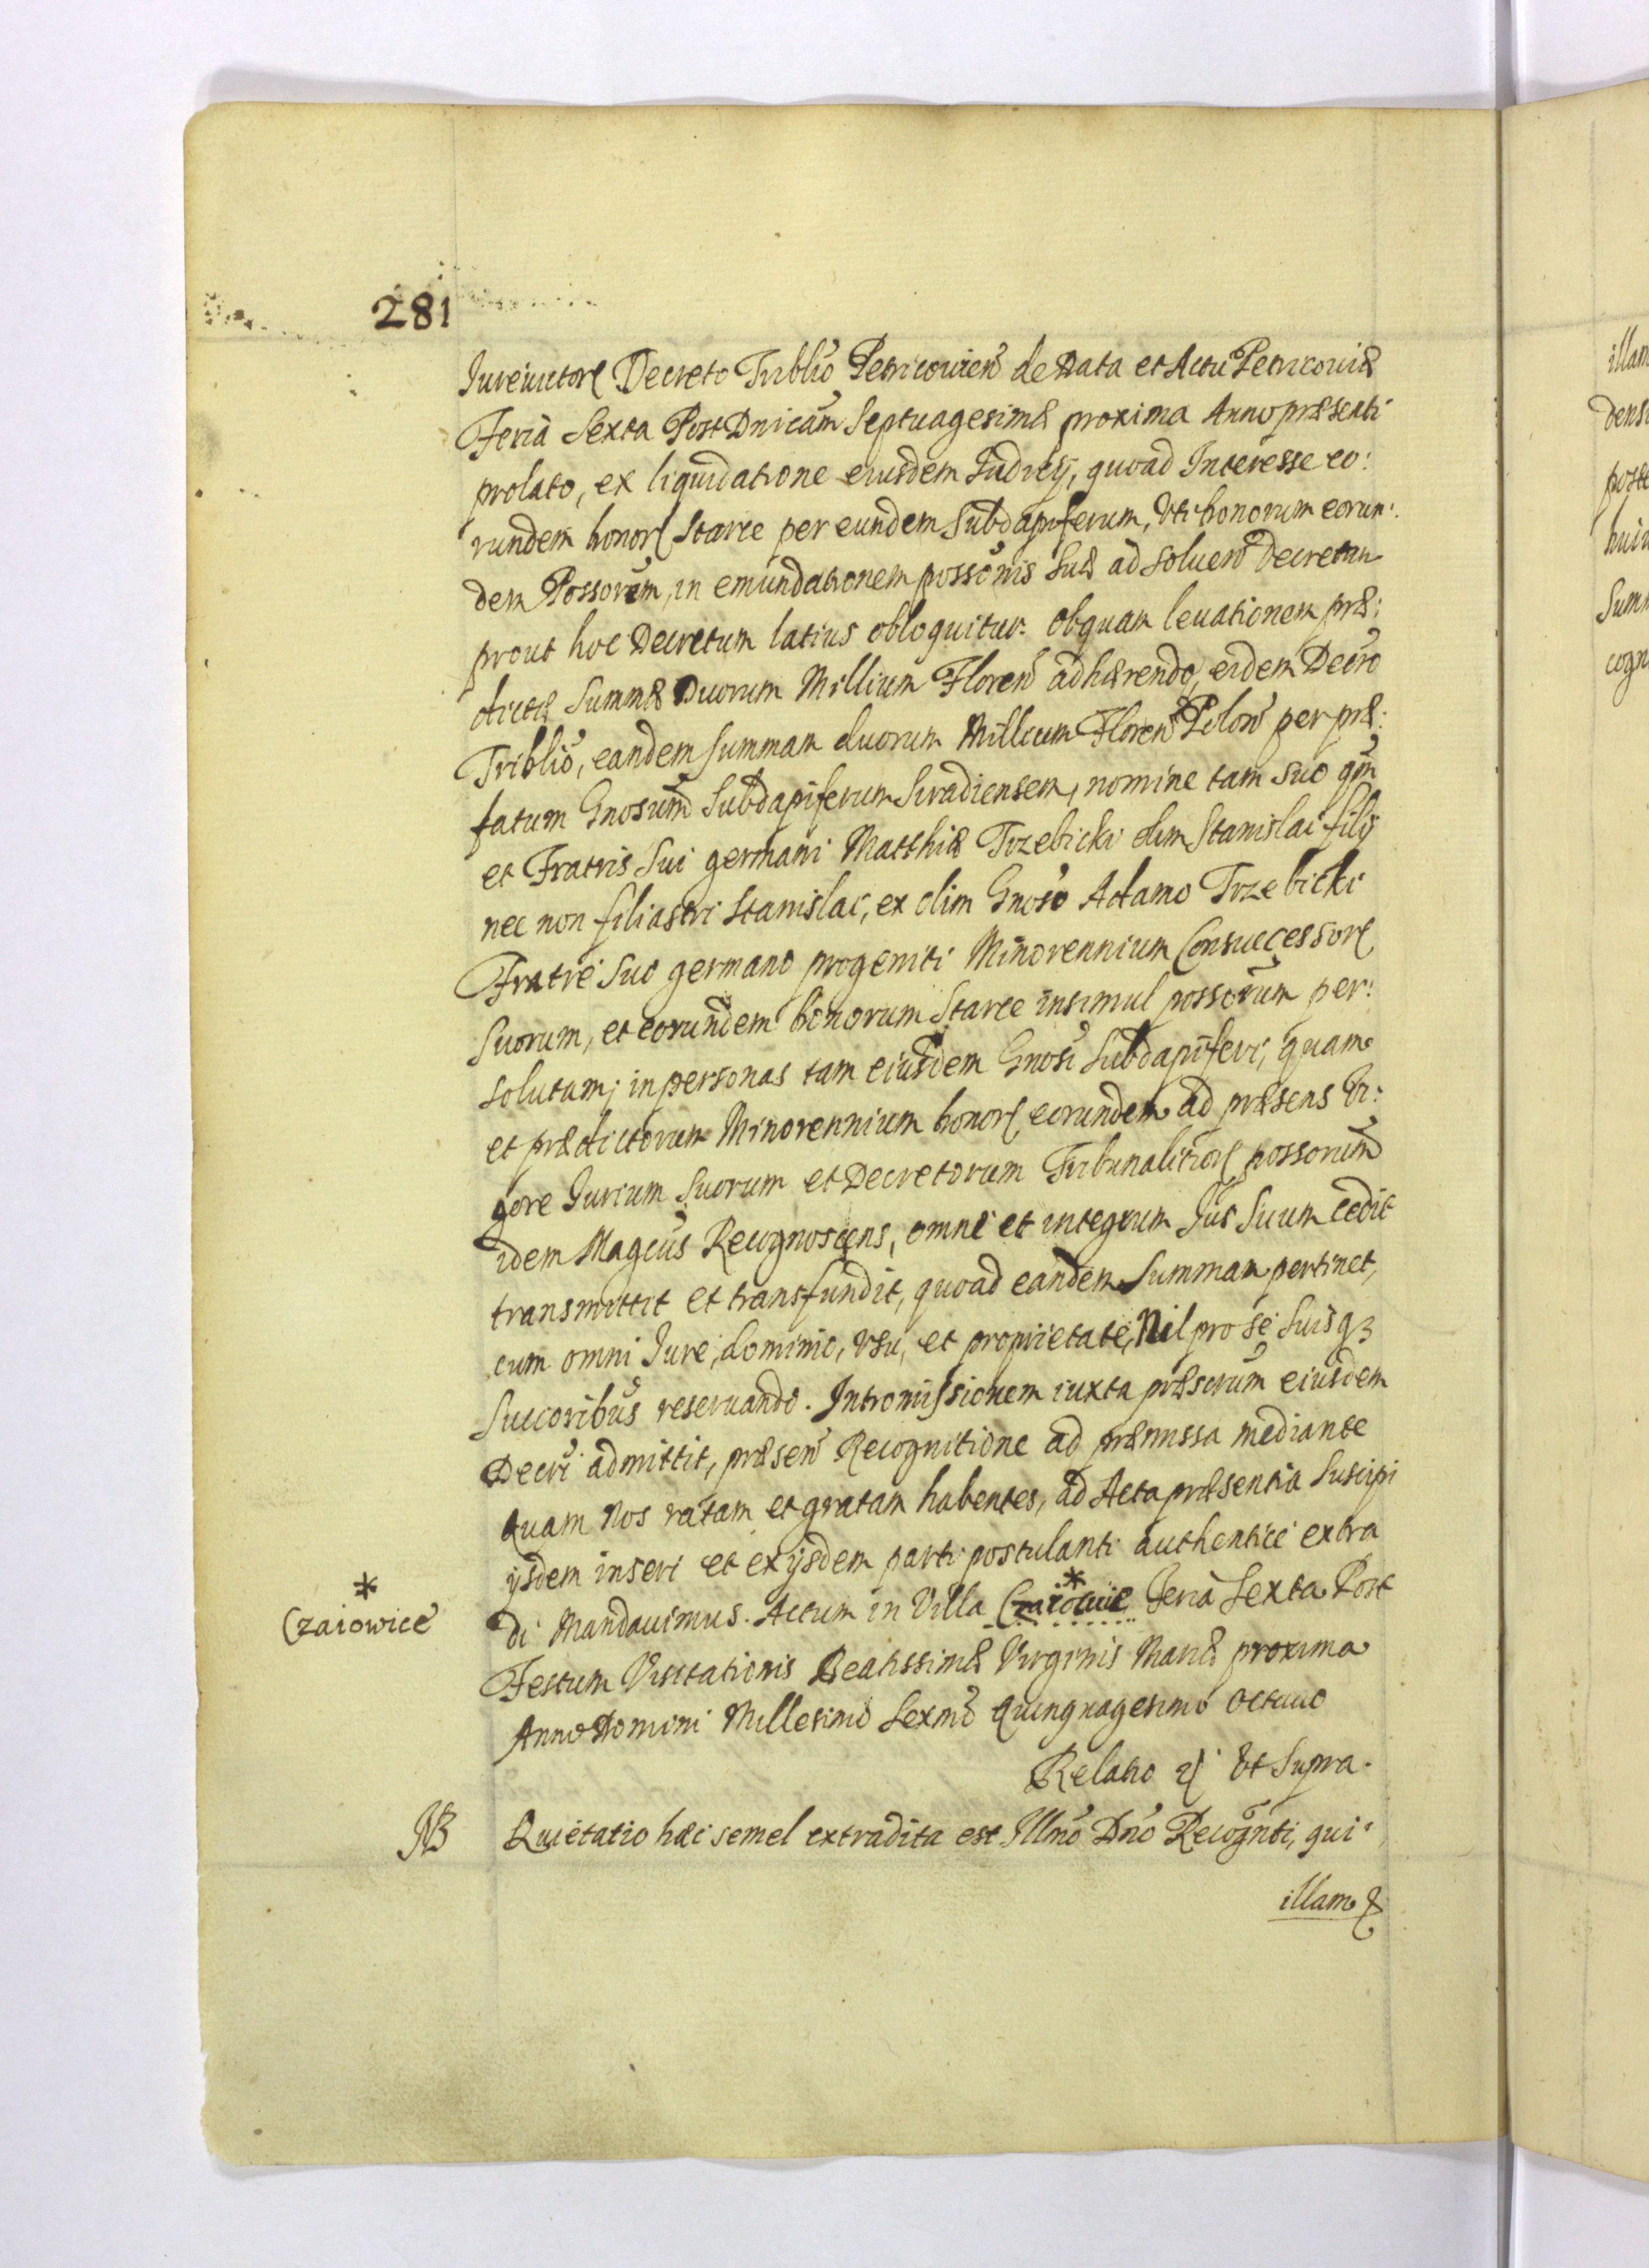 281
Iureiuctorę Decreto Triblio Petricouien de Data et Actu Petricouiæ
Feria Sexta Post Dnicam Septuagesimæ proxima Anno præsenti
prolato, ex liquidatione eiusdem Iudicij, quoad Interesse eo:
rundem bonorę Starce per eundem Subdapiferum, Vti bonorum eorun:
dem Possorum, in emundationem possonis suæ ad soluen Decretam
prout hoc Decretum latius obloquitur. Ob quam leuationem præ:
dictæ Summæ Duorum Millium Floren adhærendo, eidem Decro
Triblio, eandem summam duorum Millium Floren Polon per præ:
fatum Gnosum Subdapiferum Siradiensem, nomine tam suo qm
et Fratris Sui germani Matthiæ Trzebicki olim Stanislai filij
nec non filiastri Stanislai, ex olim Gnoso Adamo Trzebicki
Fratre Suo germano progeniti Minorennium Consuccessorę
Suorum, et eorundem bonorum Starce insimul possorum per:
solutam, in personas tam eiusdem Gnosi Subdapiferi, quam
et prædictorum Minorennium bonorę eorundem ad præsens Vi:
gore Iurium Suorum et Decretorum Tribunalitiorę possorum
idem Magcus Recognoscens, omne et integrum Ius Suum cedit
transmittit et transfundit, quoad eandem Summam pertinet,
cum omni Iure, dominio, vsu, et proprietate, Nil pro se Suisqꝫ
Succoribus reseruando. Intromissionem iuxta præscrum eiusdem
Decri admittit, præsen Recognitione ad præmissa mediante
Quam Nos ratam et gratam habentes, ad Acta præsentia Suscipi
ijsdem inseri et ex ijsdem parti postulanti authentice extra
di Mandauimus. Actum in Villa * Feria Sexta Post
* Czaiowice
Festum Visitationis Beatissimæ Virginis Mariæ proxima
Anno Domini Millesimo Sexmo Quinquagesimo octauo
Relatio Vt Supra.
NB Quietatio hæc semel extradita est Illno Dno Recognti, qui
illam